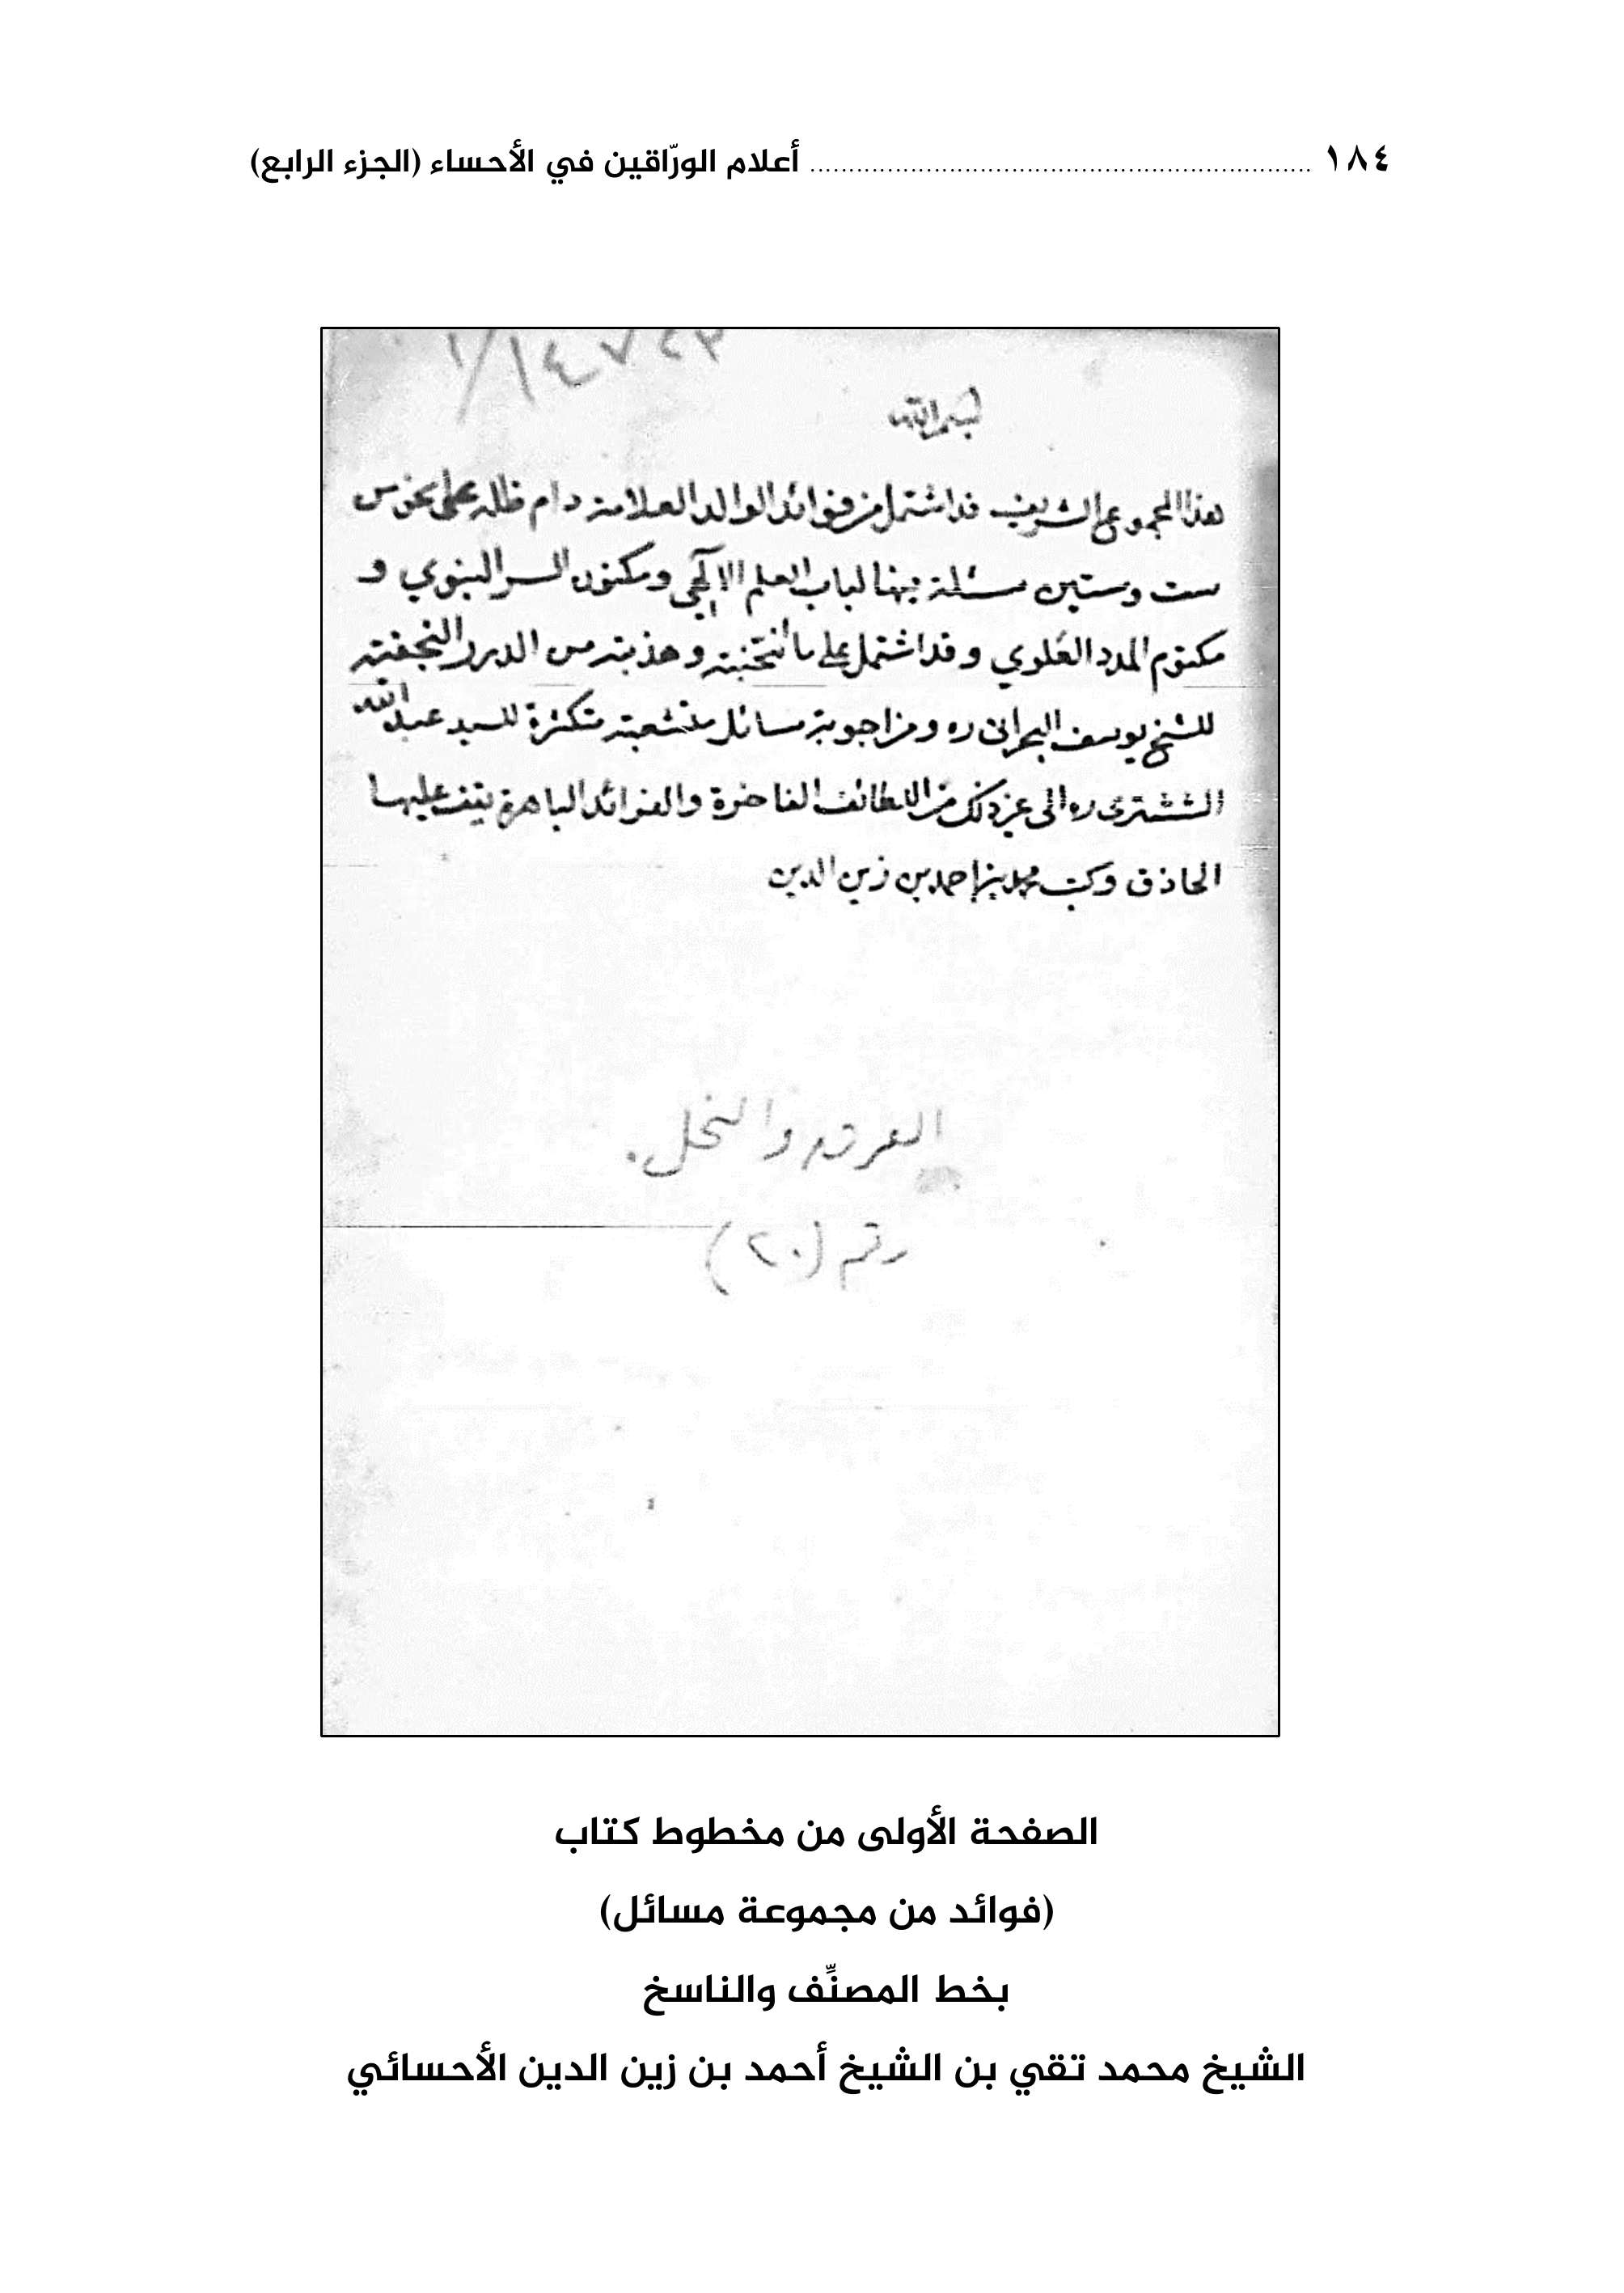 ١٨٤ ........................ أعلام الورّاقين في الأحساء (الجزء الرابع)
بسم الله
هذا المجموع الشريف قد اشتمل من فوائد الوالد العلامة دام ظله على نحو من
ست وستين مسئلة بينها لباب العلم الإلهي ومكنون السر النبوي و
مكتوم المدد العَلوي وقد اشتمل على ما انتخبته وهذبته من الدرر النجفية
للشيخ يوسف البحراني ره ومن اجوبة مسائل متشعبة متكثرة للسيد عبد الله
الششتري ره الى غير ذلك من اللطائف الفاخرة والفوائد الباهرة يقف عليها
الحاذق وكتب محمد بن احمد بن زين الدين
العرق والنخل.
رقم (٢٠)
الصفحة الأولى من مخطوط كتاب
(فوائد من مجموعة مسائل)
بخط المصنِّف والناسخ
الشيخ محمد تقي بن الشيخ أحمد بن زين الدين الأحسائي